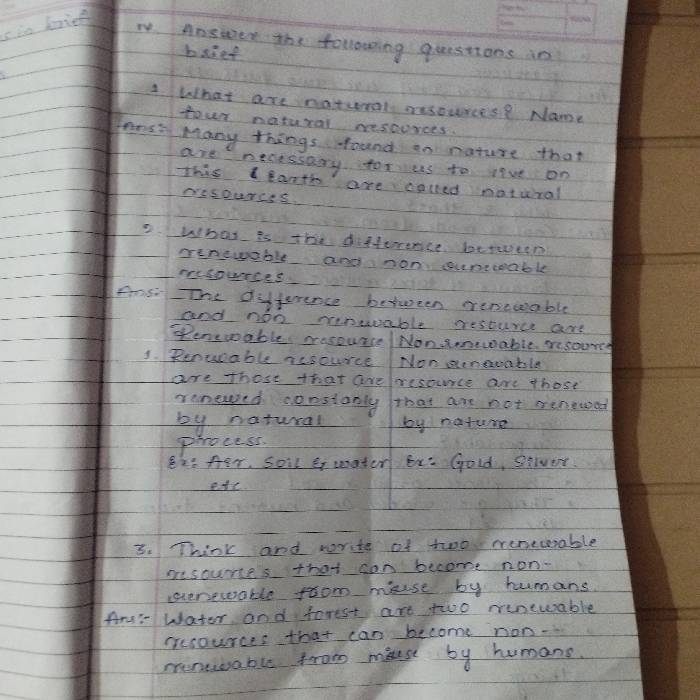 s in brief
IV. Answer the following questions in
brief
1 What are natural resources? Name
four natural resources.
Ans:- Many things found in nature that
are necessary for us to live on
this Earth are called natural
resources.
2. What is the difference between
renewable and non renewable
resources.
Ans:- The difference between renewable
and non renewable resource are
Renewable resource | Non renewable resource
1. Renewable resource | Non renewable
are those that are | resource are those
renewed constanly | that are not renewed
by natural | by nature
process.
Ex:- Air, Soil & water | Ex:- Gold, Silver.
etc
3. Think and write of two renewable
resources that can become non-
renewable from misuse by humans.
Ans:- Water and forest are two renewable
resources that can become non-
renewable from misuse by humans.